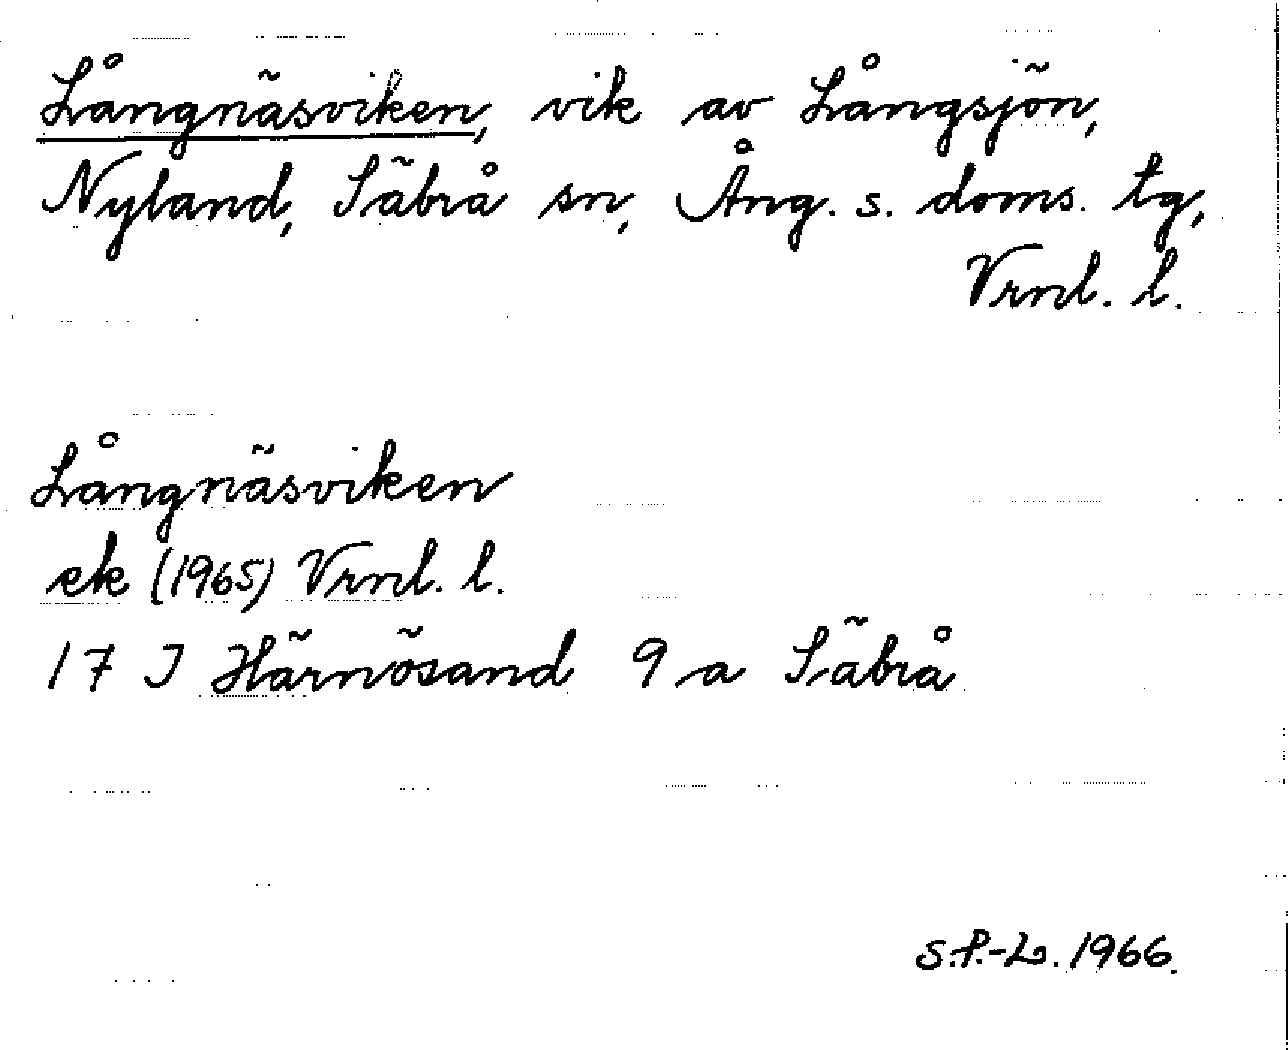 Långnäsviken, vik av Långsjön,
Nyland, Säbrå sn, Ång. s. doms. tg,
Vrnl. l.
Långnäsviken
ek (1965) Vrnl. l.
17 I Härnösand 9 a Säbrå
S.P.-L. 1966.